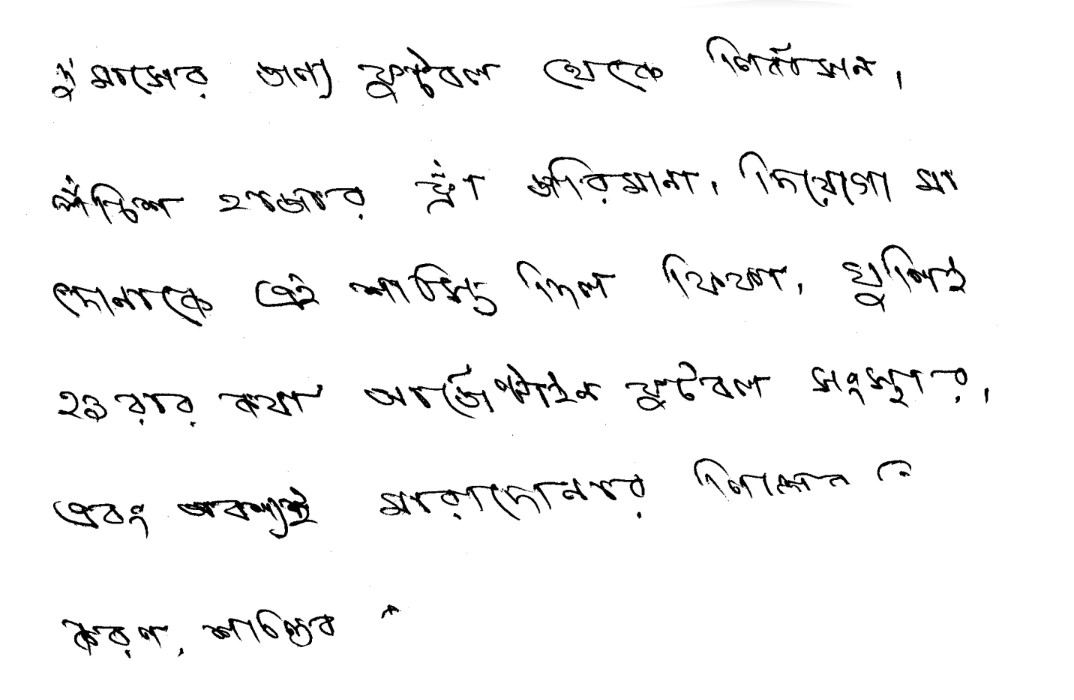 দু মাসের জন্য ফুটবল থেকে নির্বাসন,
পঁচিশ হাজার ফ্রাঁ জরিমানা, দিয়েগো মা
দোনাকে এই শাস্তি দিল ফিফা, খুশিই
হওয়ার কথা আর্জেন্টাইন ফুটবল সংস্থার,
এবং অবশ্যই মারাদোনার নিজের
কারণ, শাস্তির